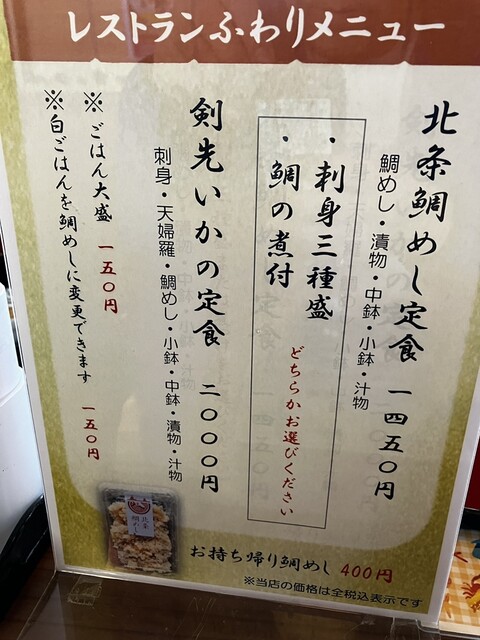 レストランふわりメニュー
北条鯛めし定食 一四五〇円
鯛めし・漬物・中鉢・小鉢・汁物
・刺身三種盛
・鯛の煮付
どちらかお選びください
剣先いかの定食 二〇〇〇円
刺身・天婦羅・鯛めし・小鉢・中鉢・漬物・汁物
※ごはん大盛 一五〇円
※白ごはんを鯛めしに変更できます 一五〇円
北条
鯛めし
お持ち帰り鯛めし 400円
※当店の価格は全税込表示です